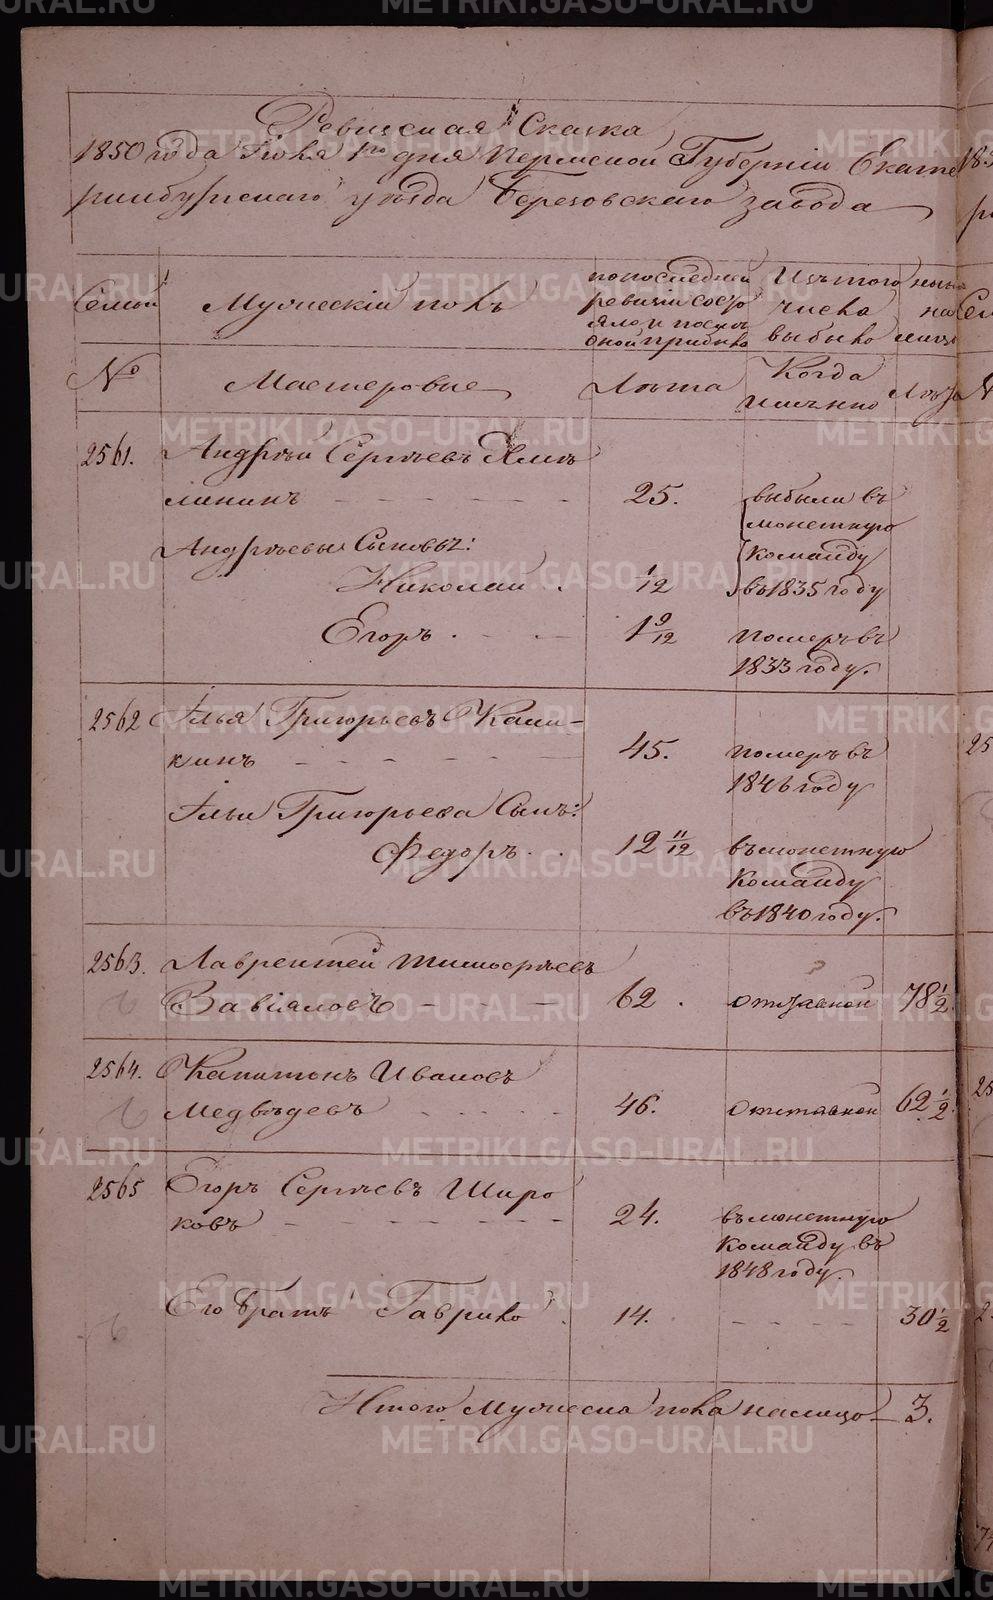 Ревизская Сказка
1850 года Іюля 1го дня Пермской Губерніи Екате
ринбургскаго уѣзда Березовскаго завода
Семьи
Мужескій полъ
по последней
ревизіи состо
яло и послѣ
оной прибыло
Изъ того
числа
выбыло
ныне
на
лицо
№
Мастеровые
Лѣта
Когда
имянно
Лѣта
2561.
Андрѣй Сергѣевъ
25.
выбыли въ
монетную
команду
въ 1835 году
Андрѣевы Сыновьи:
Николай
1/12
Егоръ
1 9/12
померъ въ
1833 году.
2562
Илья Григорьевъ Каши-
кинъ
45.
померъ въ
1846 году
Ильи Григорьева Сынъ:
Федоръ
12 11/12
въ монетную
команду
въ 1840 году.
2563.
Лаврентей Тимофѣевъ
Завіяловъ
62
отставной
78 1/2
2564.
Капитонъ Ивановъ
Медвѣдевъ
46.
отставной
62 1/2
2565
Егоръ Сергѣевъ Широ
ковъ
24.
въ монетную
команду въ
1848 году.
Его братъ Гаврило
14.
30 1/2
Итого мужеска пола на лицо
3.
METRIKI.GASO-URAL.RU